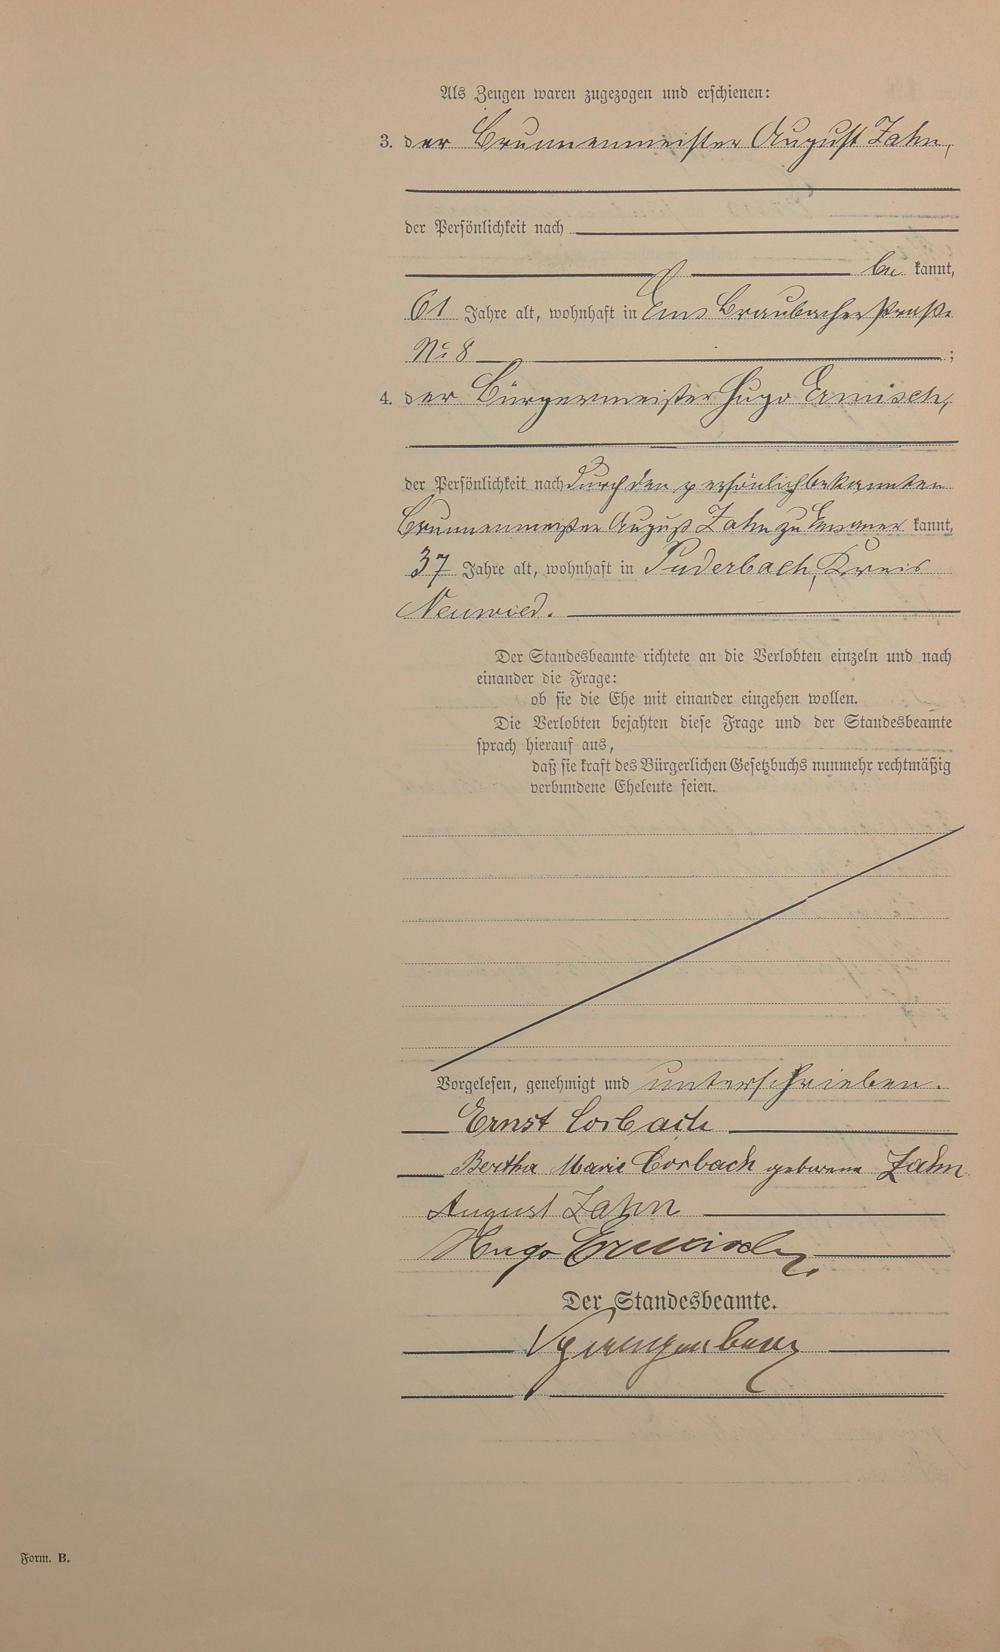 Als Zeugen waren zugezogen und erschienen:
3. der Brunnenmeister August Zahn,
der Persönlichkeit nach
be kannt,
61 Jahre alt, wohnhaft in Ems Braubacherstraße
No 8 ;
4. der Bürgermeister Hugo Ermisch,
der Persönlichkeit nach durch den persönlich bekannten
Brunnenmeister August Zahn zu Ems aner kannt,
37 Jahre alt, wohnhaft in Puderbach, Kreis
Neuwied.
Der Standesbeamte richtete an die Verlobten einzeln und nach
einander die Frage:
ob sie die Ehe mit einander eingehen wollen.
Die Verlobten bejahten diese Frage und der Standesbeamte
sprach hierauf aus,
daß sie kraft des Bürgerlichen Gesetzbuchs nunmehr rechtmäßig
verbundene Eheleute seien.
Vorgelesen, genehmigt und unterschrieben.
Ernst Corbach
Bertha Marie Corbach geborene Zahn
August Zahn
Hugo Ermisch
Der Standesbeamte.
Form. B.